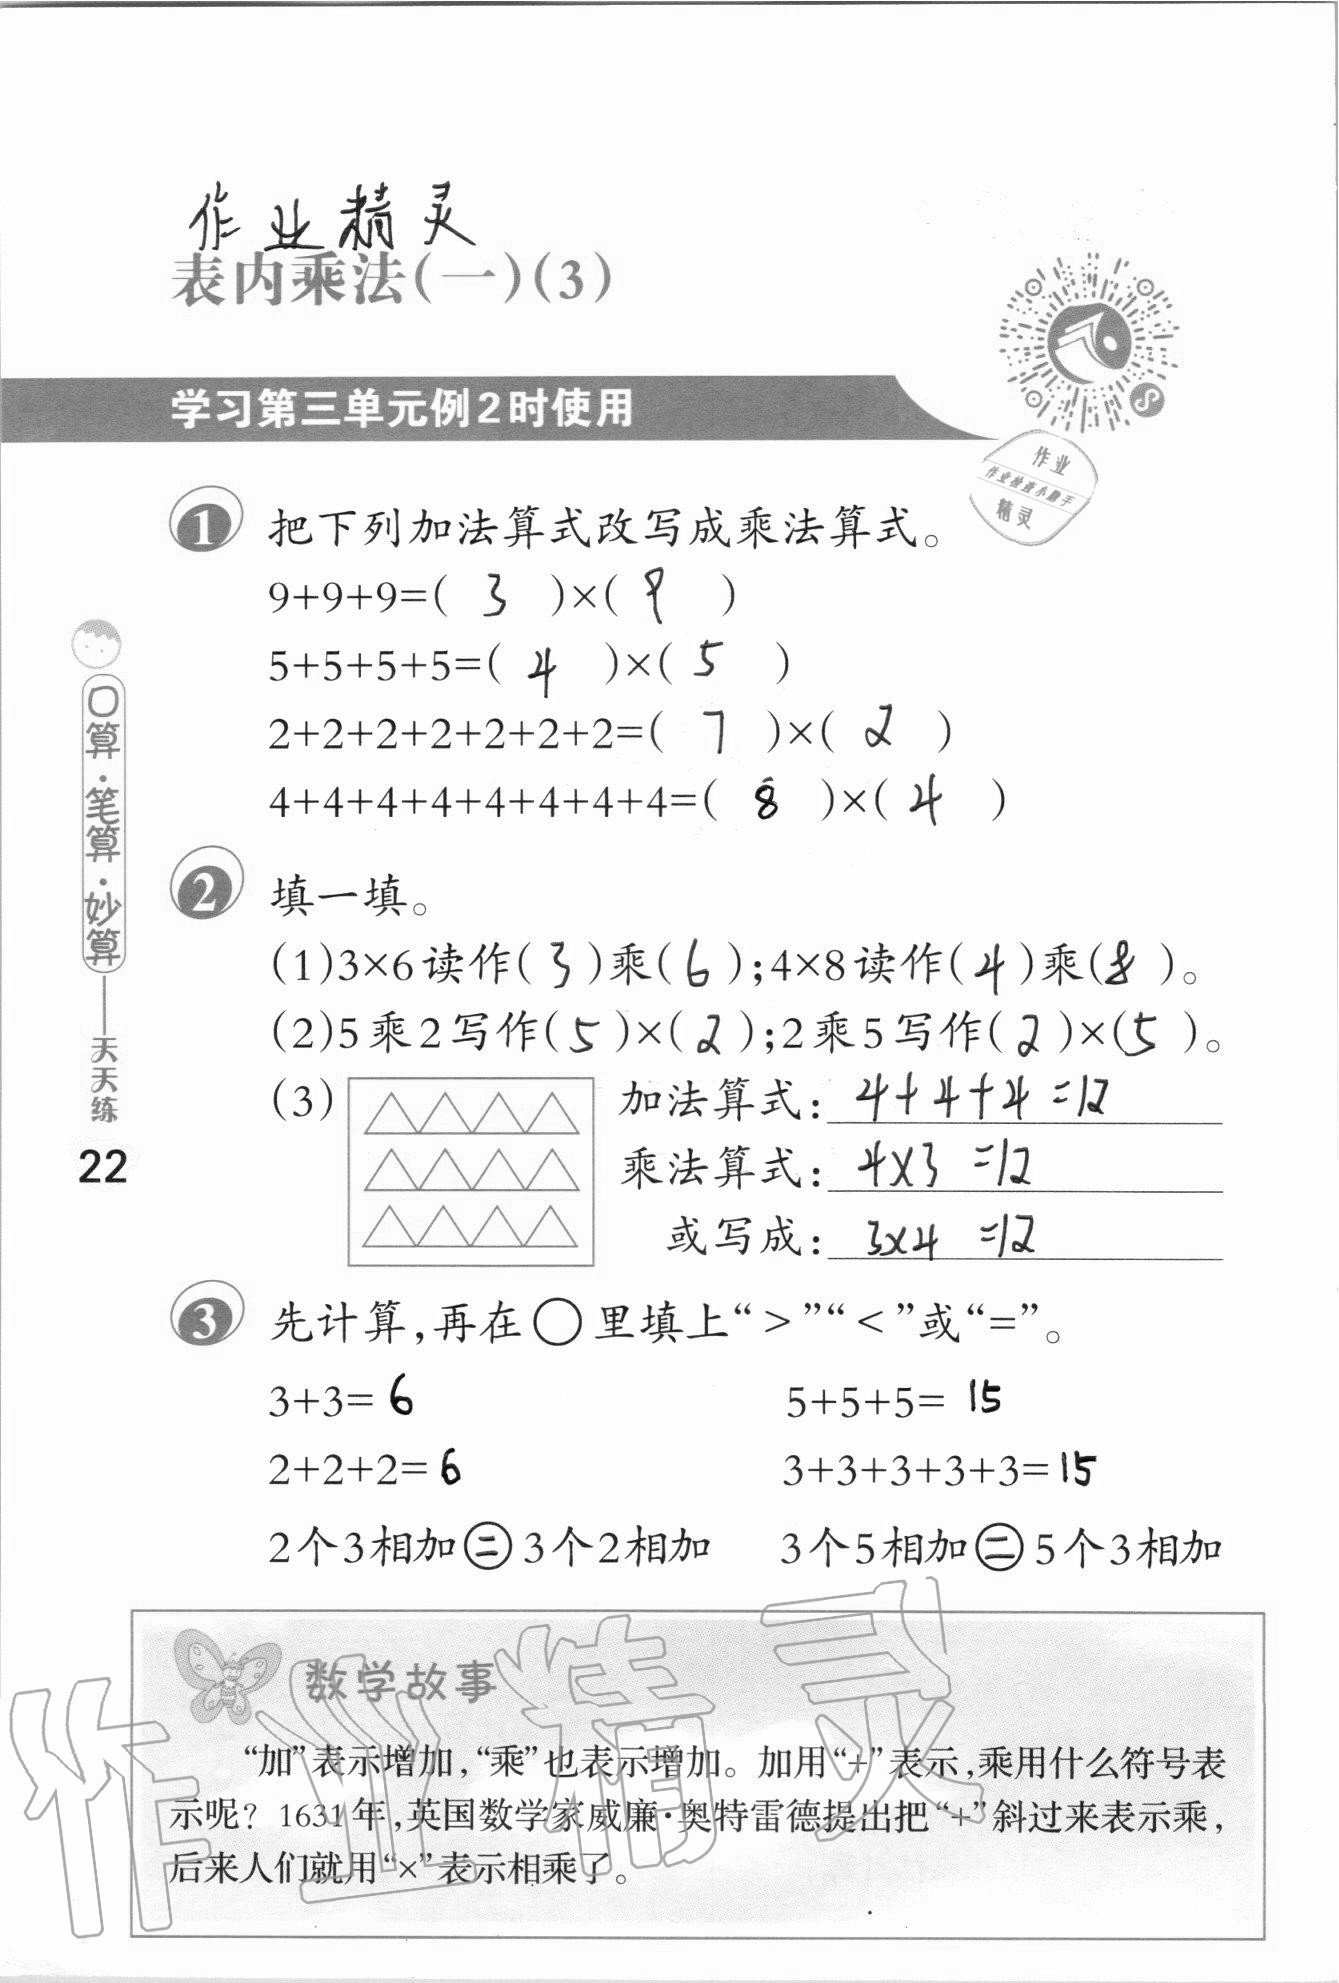 作业精灵
表内乘法(一)(3)
学习第三单元例2时使用
作业
作业检查小助手
精灵
1 把下列加法算式改写成乘法算式。
9+9+9=( 3 )×( 9 )
5+5+5+5=( 4 )×( 5 )
2+2+2+2+2+2+2=( 7 )×( 2 )
4+4+4+4+4+4+4+4=( 8 )×( 4 )
2 填一填。
(1)3×6读作(3)乘(6);4×8读作(4)乘(8)。
(2)5乘2写作(5)×(2);2乘5写作(2)×(5)。
(3) 加法算式: 4+4+4=12
乘法算式: 4×3=12
或写成: 3×4=12
3 先计算,再在○里填上“>”“<”或“=”。
3+3=6 5+5+5=15
2+2+2=6 3+3+3+3+3=15
2个3相加=3个2相加 3个5相加=5个3相加
口算·笔算·妙算——天天练
22
数学故事
“加”表示增加,“乘”也表示增加。加用“+”表示,乘用什么符号表
示呢?1631年,英国数学家威廉·奥特雷德提出把“+”斜过来表示乘,
后来人们就用“×”表示相乘了。
作业精灵